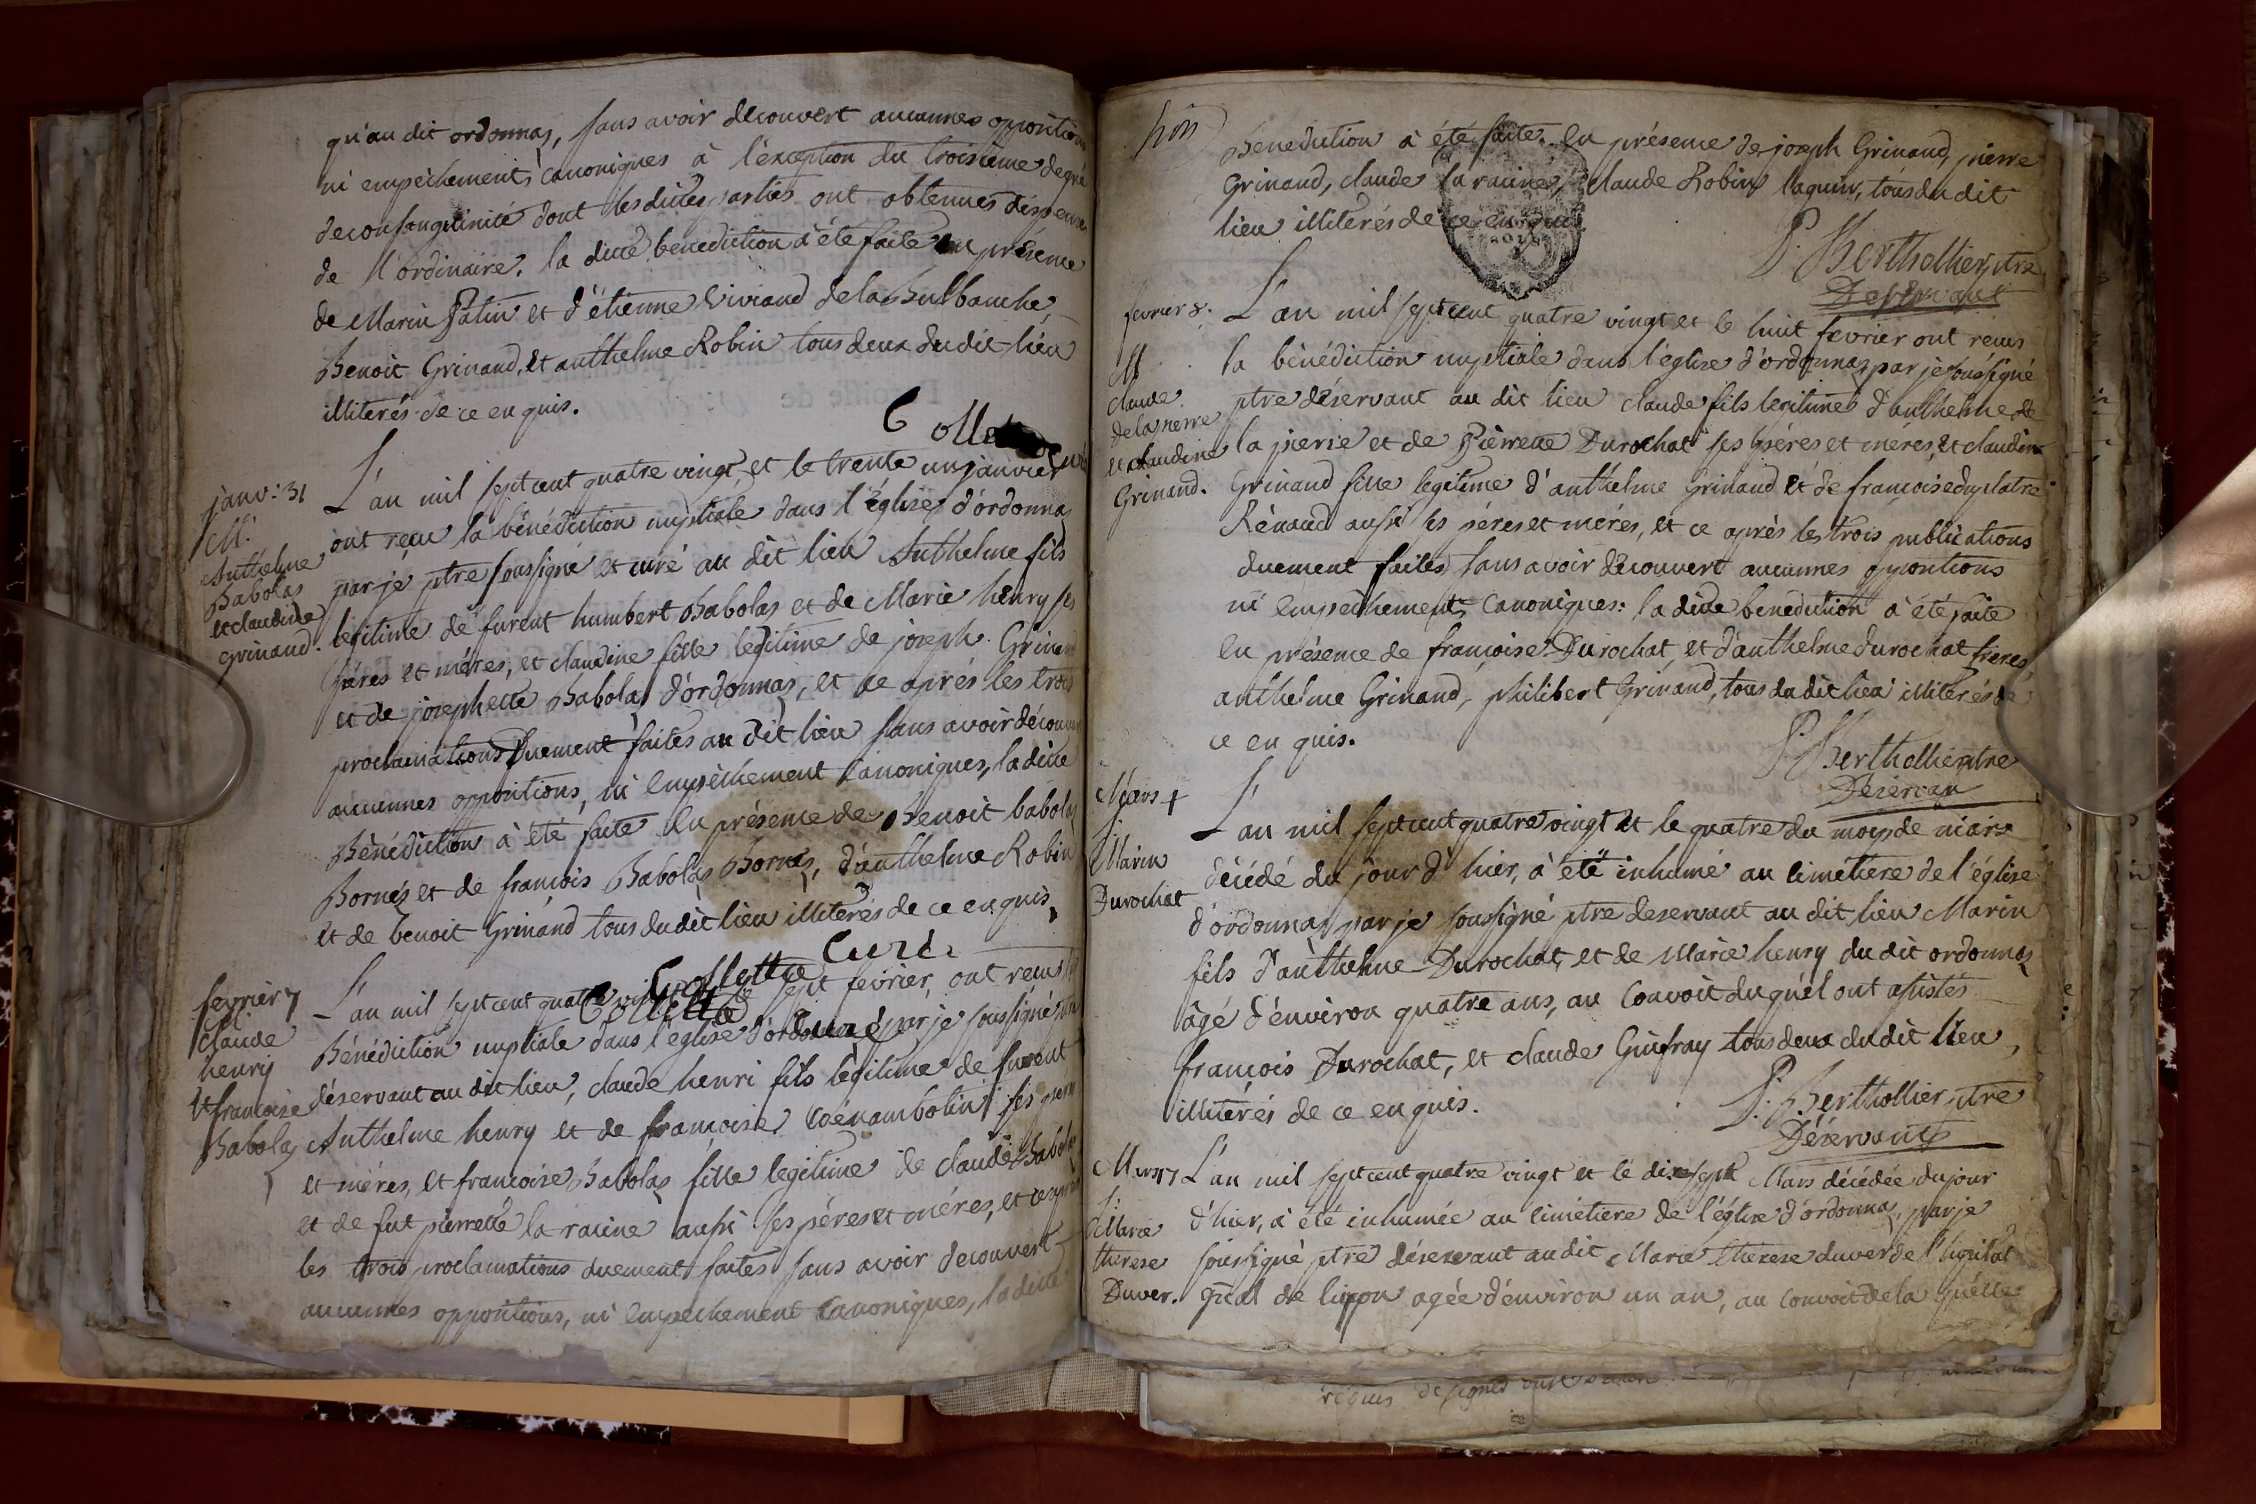 qu'au dit ordonnaz, sans avoir decouvert aucunnes oppositions
ni empêchements canoniques à l'exception du troisième degré
de consanguinité dont les dittes parties ont obtenues dispense
de l'ordinaire. la ditte bénédiction à été faite en présence
de Marin Patin et d'étienne Viviand de la Bulbanche,
Benoit Grinand, et anthelme Robin tous deux du dit lieu
illiterés de ce enquis.
Collet
janv: 31
M.
Anthelme
Babolaz
et claudine
Grinand.
L'an mil sept cent quatre vingt, et le trente un janvier
ont reçu la bénédiction nuptiale dans l'église d'ordonnaz
par je ptre soussigné et curé au dit lieu Anthelme fils
legitime de furent humbert Babolaz et de Marie henry ses
péres et méres, et claudine fille legitime de joseph Grinand
et de josephette Babolaz d'ordonnaz, et ce aprés les trois
proclamations duement faites au dit lieu sans avoir découvert
aucunnes oppositions, ni empêchement canoniques, la ditte
Bénédiction à été faite en présence de Benoit babolaz
Bornéz et de francois Babolaz Bornéz, d'anthelme Robin
et de benoit Grinand tous du dit lieu illiterés de ce enquis,
Collettaz Curé
Collettaz Curé
fevrier 7
M.
Claude
henry
et francoise
Babolaz
L'an mil sept cent quatre vingt sept fevrier, ont recus la
Bénédiction nuptiale dans l'église d'ordonnaz par je soussigné
déservant au dit lieu, claude henri fils légitime de furent
Anthelme henry et de francoise ses peres
et méres, et francoise Babolaz fille legitime de claude Babolaz
et de fut pierrette la racine aussi ses péres et méres, et ce aprés
les trois proclamations duement faites sans avoir decouvert
aucunnes oppositions, ni empechement canoniques, la ditte
Benediction à été faite. en présence de joseph Grinand, pierre
Grinand, claude la racine, claude Robin laquin, tous du dit
lieu illiterés de ce enquis
P. Berthollier ptre
Deservant
fevrier 8.
M
claude
de la pierre
et claudine
Grinand.
L'an mil sept cent quatre vingt et le huit fevrier ont recus
la bénédiction nuptiale dans l'église d'ordonnaz par je soussigné
ptre déservant au dit lieu claude fils legitime d'anthelme de
la pierre et de Pierrette Durochat ses péres et méres, et claudine
Grinand fille legitime d'anthelme Grinand et de francoise duplatre
Rénaud aussi ses péres et méres, et ce aprés les trois publications
duement faites, sans avoir découvert aucunnes oppositions
ni empêchements canoniques: la ditte benediction à été faite
en présence de françoise Durochat, et d'anthelme durochat freres
anthelme Grinand, philibert Grinand, tous du dit lieu illiterés de
ce enquis.
P. Berthollier ptre
Déservan
Mars 4
S.
Marin
Durochat
L'an mil sept cent quatre vingt et le quatre du moys de mars
décédé du jour d'hier, à été inhumé au cimétiere de l'église
d'ordonnaz par je soussigné ptre deservant au dit lieu Marin
fils d'anthelme Durochat, et de Marie henry du dit ordonnaz
âgé d'énviron quatre ans, au convoit duquél ont assistés
françois Durochat, et claude Guifray tous deux du dit lieu,
illiterés de ce enquis.
P. Berthollier ptre
Déservant
Mars 17
S.
Marie
therese
Duver.
L'an mil sept cent quatre vingt et le dixe sept Mars décédée du jour
d'hier, à été inhumée au cimétiere de l'église d'ordonnaz, par je
soussigné ptre désservant au dit Marie therese duver de l'hopital
géral de lyon agée d'énviron un an, au convoit de la quélle
requis de signer